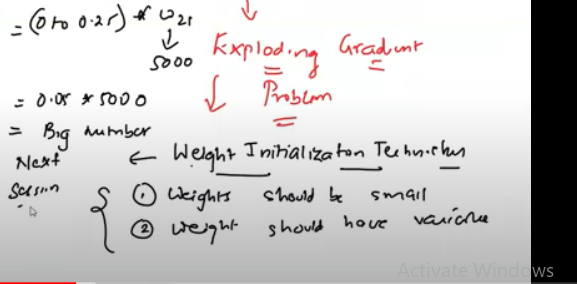 = (0 to 0.25) * ω21
↓
5000
Exploding Gradient
Problem
= 0.05 * 5000
= Big number
Next
Session
← Weight Initialization Techniques
① Weights should be small
② weight should have variance
Activate Windows